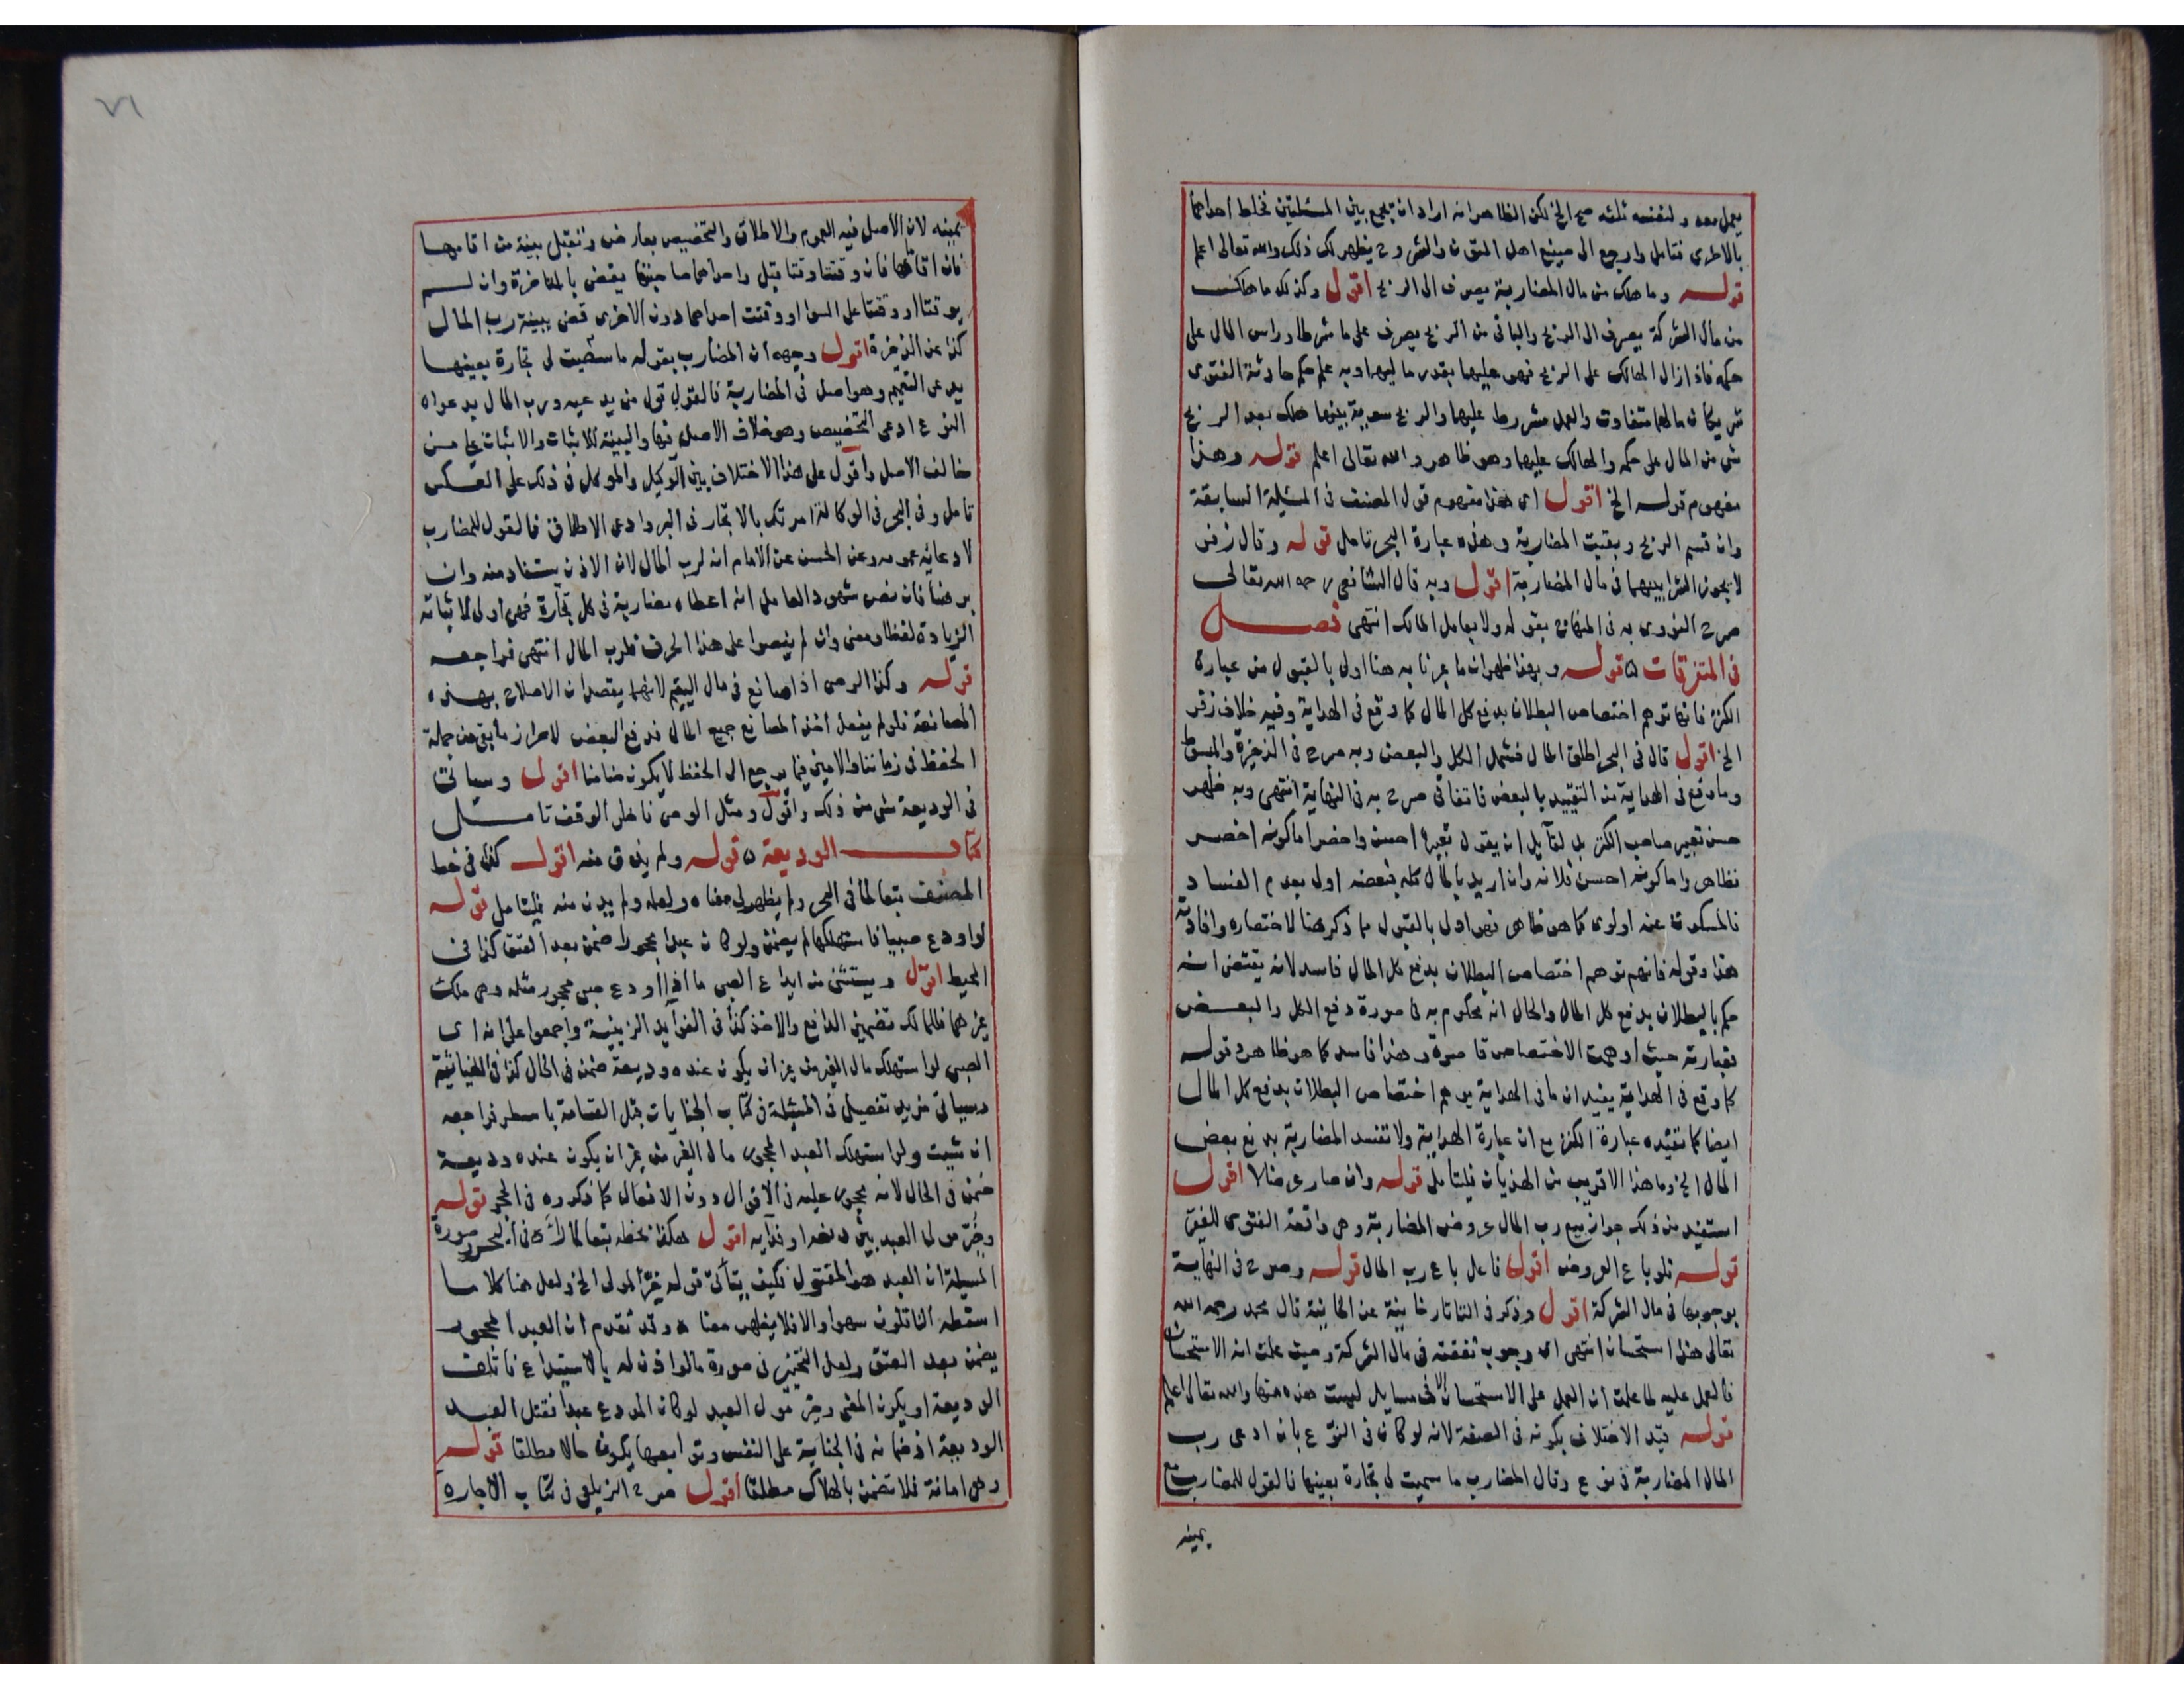 يعمل معه ولنفسه ثلثه صح الخ لكن الظاهر انه اراد ان يجمع بين المسئلتين فخلط احداهما
بالاخرى فتامل وارجع الى صنيع اهل المتون والشروح يظهر لك ذلك والله تعالى اعلم
قوله وما هلك من مال المضاربة يصرف الى الربح اقول وكذلك ما هلك
من مال الشركة يصرف الى الربح والباقي من الربح يصرف على ما شرطا وراس المال على
حكمه فاذا زال الهالك على الربح فهو عليهما بقدر ماليهما وبه علم حكم حادثة الفتوى
شريكان مالهما متفاوت والعمل مشروط عليهما والربح سوية بينهما هلك بعد الربح
شي من المال على حكمه والهالك عليهما وهو ظاهر والله تعالى اعلم قوله وهذا
مفهوم قوله الخ اقول اي هذا مفهوم قول المصنف في المسئلة السابقة
وان قسم الربح وبقيت المضاربة وهذه عبارة البحر تامل قوله وقال زفر
لا يجوز الشرا بينهما في مال المضاربة اقول وبه قال الشافعي رحمه الله تعالى
صرح النووي به في المنهاج بقوله ولا يعامل المالك انتهى فصل
في المتفرقات ه قوله وبهذا ظهر ان ما عبرنا به هنا اولى بالقبول من عبارة
الكنز فانها توهم اختصاص البطلان بدفع كل المال كما وقع في الهداية وفيه خلاف زفر
الخ اقول قال في البحر اطلق المال فشمل الكل والبعض وبه صرح في الذخيرة والمبسوط
وما وقع في الهداية من التقييد بالبعض فاتفاقي صرح به في النهاية انتهى وبه ظهر
حسن تعبير صاحب الكنز بل لقايل ان يقول تعبيره احسن واخصر اما كونه اخصر
فظاهر واما كونه احسن فلانه وان اريد بالمال كله فبعضه اولى بعدم الفساد
فالمسكوت عنه اولوي كما هو ظاهر فهو اولى بالقبول مما ذكر هنا لاختصاره وافادته
هذا وقوله فانهم توهم اختصاص البطلان بدفع كل المال فاسد لانه يقتضي انه
حكم بالبطلان بدفع كل المال والحال انه محكوم به في صورة دفع الكل والبعض
فعبارته حيث اوهمت الاختصاص قاصرة وهذا فاسد كما هو ظاهر وقوله
كما وقع في الهداية يفيد ان ما في الهداية يوهم اختصاص البطلان بدفع كل المال
ايضا كما تفيده عبارة الكنز مع ان عبارة الهداية ولا تفسد المضاربة بدفع بعض
المال الخ وما هذا الا قريب من الهذيان فليتامل قوله وان صار عرضا لا اقول
استفيد من ذلك جواز بيع رب المال عروض المضاربة وهي واقعة الفتوى للفقير
قوله فلو باع العروض اقول فاعل باع رب المال قوله وصرح في النهاية
بوجوبها في مال الشركة اقول وذكر في التاتارخانية عن الخانية قال محمد رحمه الله
تعالى هذا استحسان انتهى اي وجوب نفقته في مال الشركة وحيث علمت انه الاستحسان
فالعمل عليه لما علمت ان العمل على الاستحسان الا في مسايل ليست هذه منها والله تعالى اعلم
قوله قيد الاختلاف بكونه في الصفة لانه لو كان في النوع بان ادعى رب
المال المضاربة في نوع وقال المضارب ما سميت لي تجارة بعينها فالقول للمضارب مع
يمينه
يمينه لان الاصل فيه العموم والاطلاق والتخصيص بعارض وتقبل بينة من اقامها
فان اقاماها فان وقتتا وقتا قبل واحداهما صاحبتها يقضي بالمتاخرة وان لم
يوقتا او وقتتا على السوا او وقتت احداهما دون الاخرى قضي ببينة رب المال
كذا عن الذخيرة اقول وجهه ان المضارب بقوله ما سميت لي تجارة بعينها
يدعي التعميم وهو اصل في المضاربة فالقول قول من يدعيه ورب المال بدعواه
النوع ادعى التخصيص وهو خلاف الاصل فيها والبينة للاثبات والاثبات على من
خالف الاصل واقول على هذا الاختلاف بين الوكيل والموكل في ذلك على العكس
تامل وفي البحر في الوكالة امرتك بالاتجار في البر وادعى الاطلاق فالقول للمضارب
لادعائه عمومه وعن الحسن عن الامام انه لرب المال لان الاذن يستفاد منه وان
برهنا فان نص شهود العامل انه اعطاه مضاربة في كل تجارة فهي اولى لاثباته
الزيادة لفظا ومعنى وان لم ينصوا على هذا الحرف فلرب المال انتهى فراجعه
قوله وكذا الوصي اذا صانع في مال اليتيم لانهما يقصدان الاصلاح بهذه
المصانعة فلو لم يفعل اخذ المصانع جميع المال فدفع البعض لاحراز ما بقي من جملة
الحفظ في زماننا والامين فيما يرجع الى الحفظ لا يكون ضامنا اقول وسياتي
في الوديعة شي من ذلك واقول ومثل الوصي ناظر الوقف تامل
كتاب الوديعة ه قوله ولم يبرق منه اقول كذا في خط
المصنف تبعا لما في البحر ولم يظهر لي معناه ولعله ولم يدن منه فليتامل قوله
لو اودع صبيا فاستهلكها لم يضمن ولو كان عبدا محجورا ضمن بعد العتق كذا في
المحيط اقول ويستثنى من ايداع الصبي ما اذا اودع صبي محجور مثله وهي ملك
غيرهما فللمالك تضمين الدافع والاخذ كذا في الفوايد الزينية واجمعوا على انه اي
الصبي لو استهلك مال الغير من غير ان يكون عنده وديعة ضمن في الحال كذا في الغياثية
وسياتي مزيد تفصيل في المسئلة في كتاب الجنايات قبل القسامة باسطر فراجعه
ان شيت ولو استهلك العبد المحجور مال الغير من غير ان يكون عنده وديعة
ضمن في الحال لانه محجور عليه في الاقوال دون الافعال كما ذكروه في الحجر قوله
وخير مولى العبد بين دفعه او فدايه اقول هكذا بخطه تبعا لما راي في البحر وصورة
المسيلة ان العبد هو المقتول فكيف يتاتى قوله خير المولى الخ ولعل هنا كلاما
اسقطه الناقلون سهوا والا فلا يظهر معناه وقد تقدم ان العبد المحجور
يضمن بعد العتق ولعل التخيير في صورة ما لو اذن له بالاستيداع فاتلف
الوديعة او يكون المعنى وخير مولى العبد لو كان المودع عبدا فقتل العبد
الوديعة اذ ضمانه في الجناية على النفس وتوابعها يكون حالا مطلقا قوله
وهي امانة فلا تضمن بالهلاك مطلقا اقول صرح الزيلعي في كتاب الاجارة